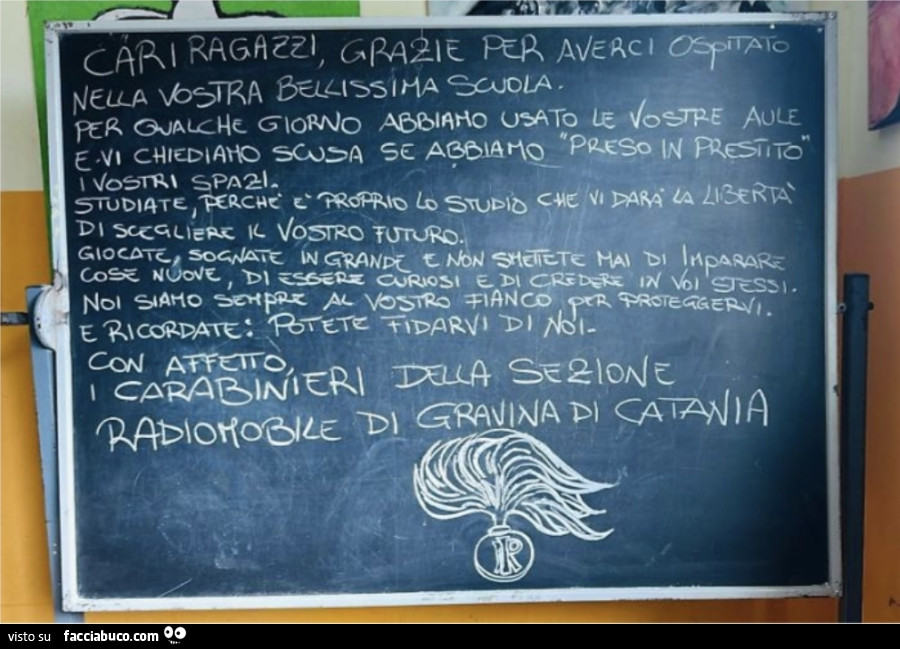 CARI RAGAZZI, GRAZIE PER AVERCI OSPITATO
NELLA VOSTRA BELLISSIMA SCUOLA.
PER QUALCHE GIORNO ABBIAMO USATO LE VOSTRE AULE
E VI CHIEDIAMO SCUSA SE ABBIAMO "PRESO IN PRESTITO"
I VOSTRI SPAZI.
STUDIATE, PERCHÈ E' PROPRIO LO STUDIO CHE VI DARA' LA LIBERTA'
DI SCEGLIERE IL VOSTRO FUTURO.
GIOCATE, SOGNATE IN GRANDE E NON SMETETE MAI DI IMPARARE
COSE NUOVE, DI ESSERE CURIOSI E DI CREDERE IN VOI STESSI.
NOI SIAMO SEMPRE AL VOSTRO FIANCO PER PROTEGGERVI.
E RICORDATE: POTETE FIDARVI DI NOI.
CON AFFETTO,
I CARABINIERI DELLA SEZIONE
RADIOMOBILE DI GRAVINA DI CATANIA
IR
visto su facciabuco.com